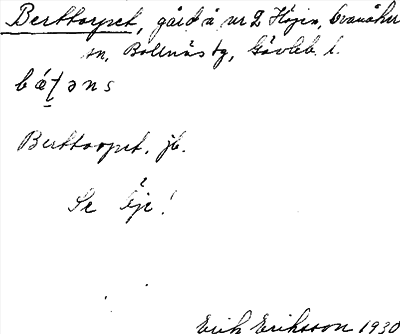 Berttorpet, gård å nr 2 Höjen, Svanåker
sn, Bollnäs tg, Gävleb. l.
Berttorpet. jb.
Se
Erik Eriksson 1930